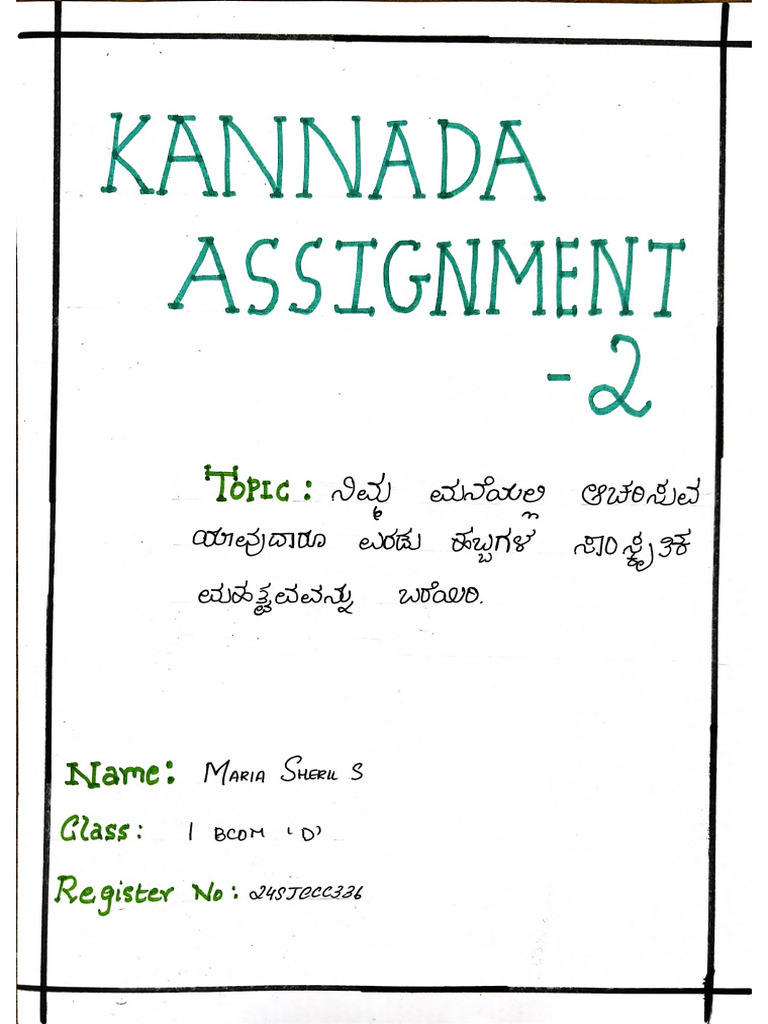 KANNADA
ASSIGNMENT
-2
TOPIC: ನಿಮ್ಮ ಮನೆಯಲ್ಲಿ ಆಚರಿಸುವ
ಯಾವುದಾರೂ ಎರಡು ಹಬ್ಬಗಳ ಸಾಂಸ್ಕೃತಿಕ
ಮಹತ್ವವವನ್ನು ಬರೆಯಿರಿ.
Name: MARIA SHERIL S
Class: I BCOM 'D'
Register No: 24SJCCC336